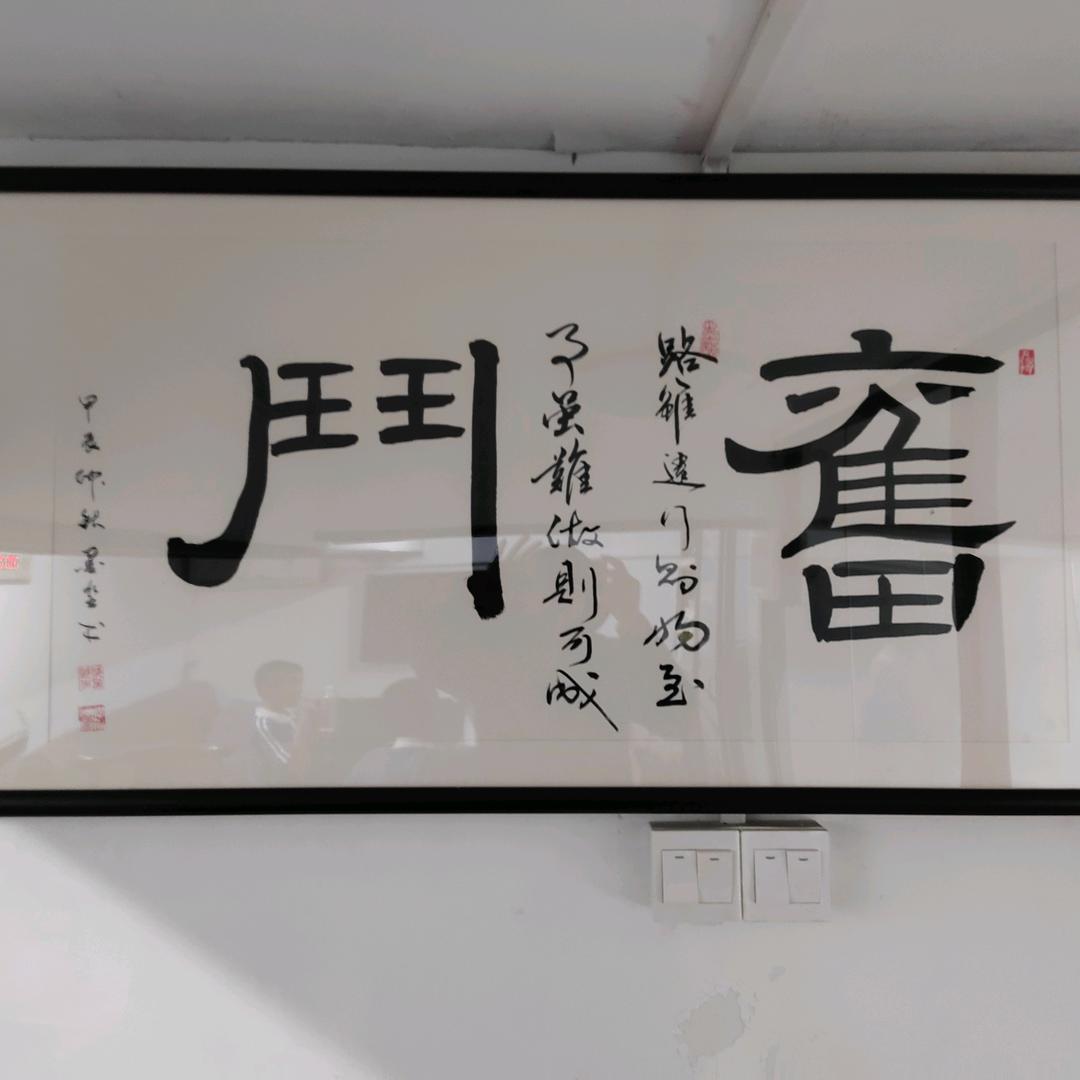 奮
路雖遠行則將至
事虽難做則可成
鬥
甲辰仲秋